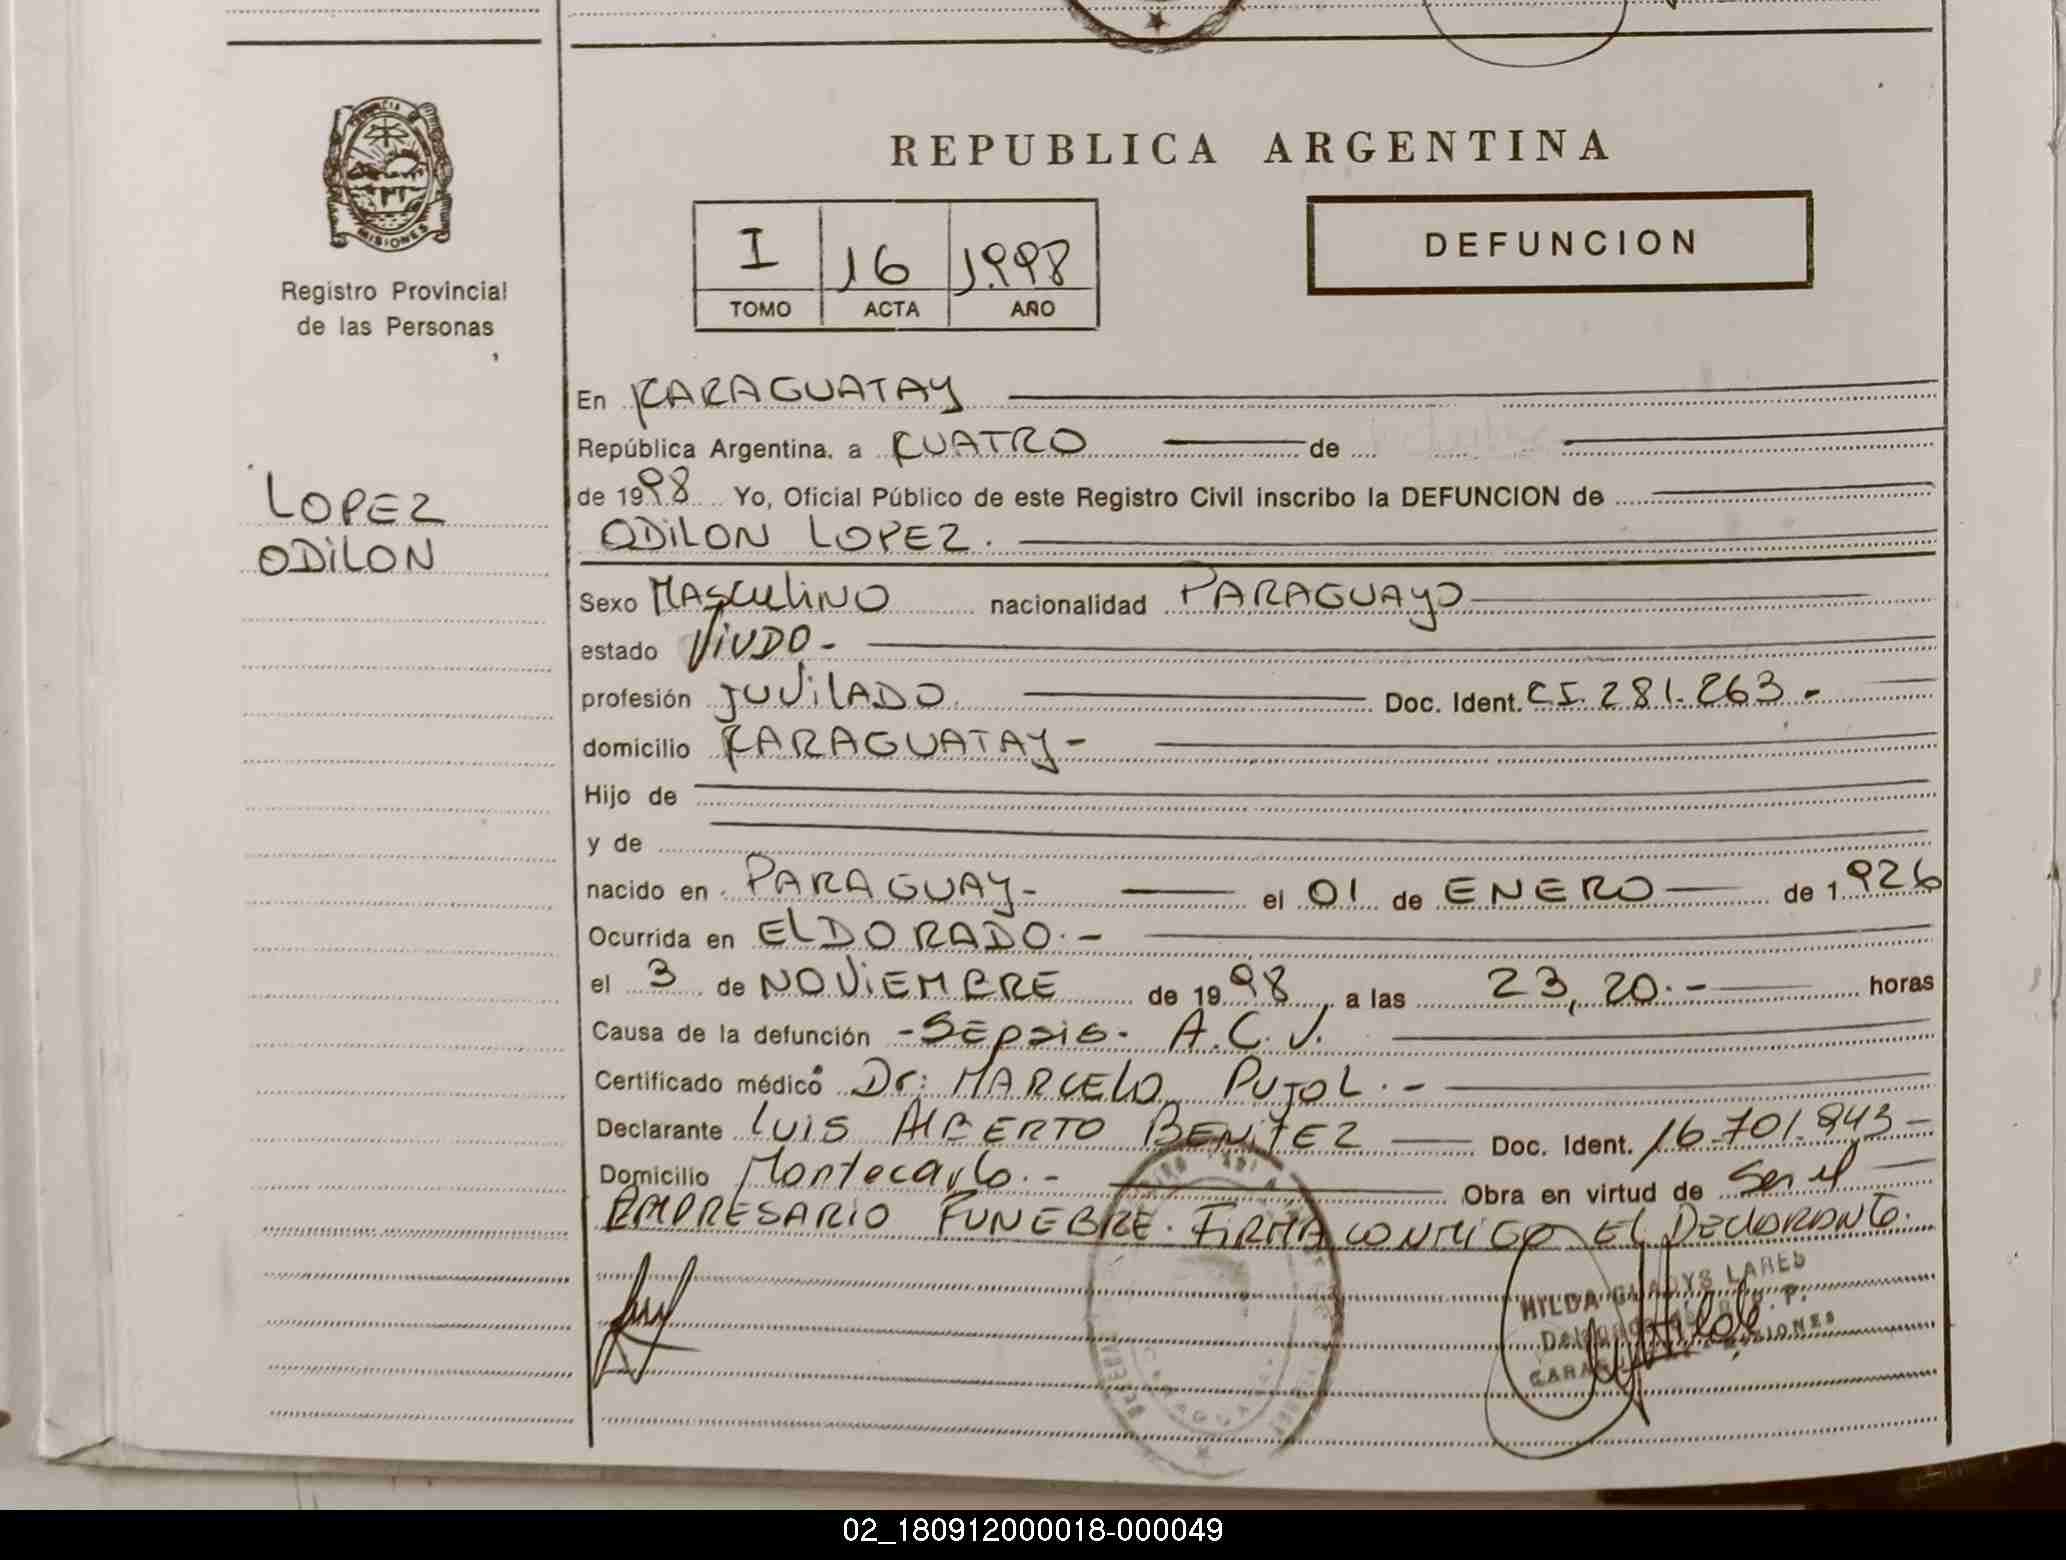 PROVINCIA
MISIONES
Registro Provincial
de las Personas
LOPEZ
ODILON
REPUBLICA ARGENTINA
I 16 1.998
TOMO ACTA AÑO
DEFUNCION
En CARAGUATAY
República Argentina, a CUATRO de
de 1998 Yo, Oficial Público de este Registro Civil inscribo la DEFUNCION de
ODILON LOPEZ.
Sexo MASCULINO nacionalidad PARAGUAYO
estado VIUDO -
profesión JUVILADO Doc. Ident. C.I. 281.263.-
domicilio CARAGUATAY -
Hijo de
y de
nacido en PARAGUAY - el 01 de ENERO de 1.926
Ocurrida en ELDORADO. -
el 3 de NOVIEMBRE de 1998, a las 23,20.- horas
Causa de la defunción - Sepsis - A.C.V.
Certificado médico Dr: MARCELO PUJOL. -
Declarante LUIS ALBERTO BENITEZ Doc. Ident. 16.701.843 -
Domicilio Montecarlo. - Obra en virtud de Ser el
EMPRESARIO FUNEBRE. FIRMA CONMIGO EL DECLARANTE.
HILDA GLADYS LARES
02_180912000018-000049